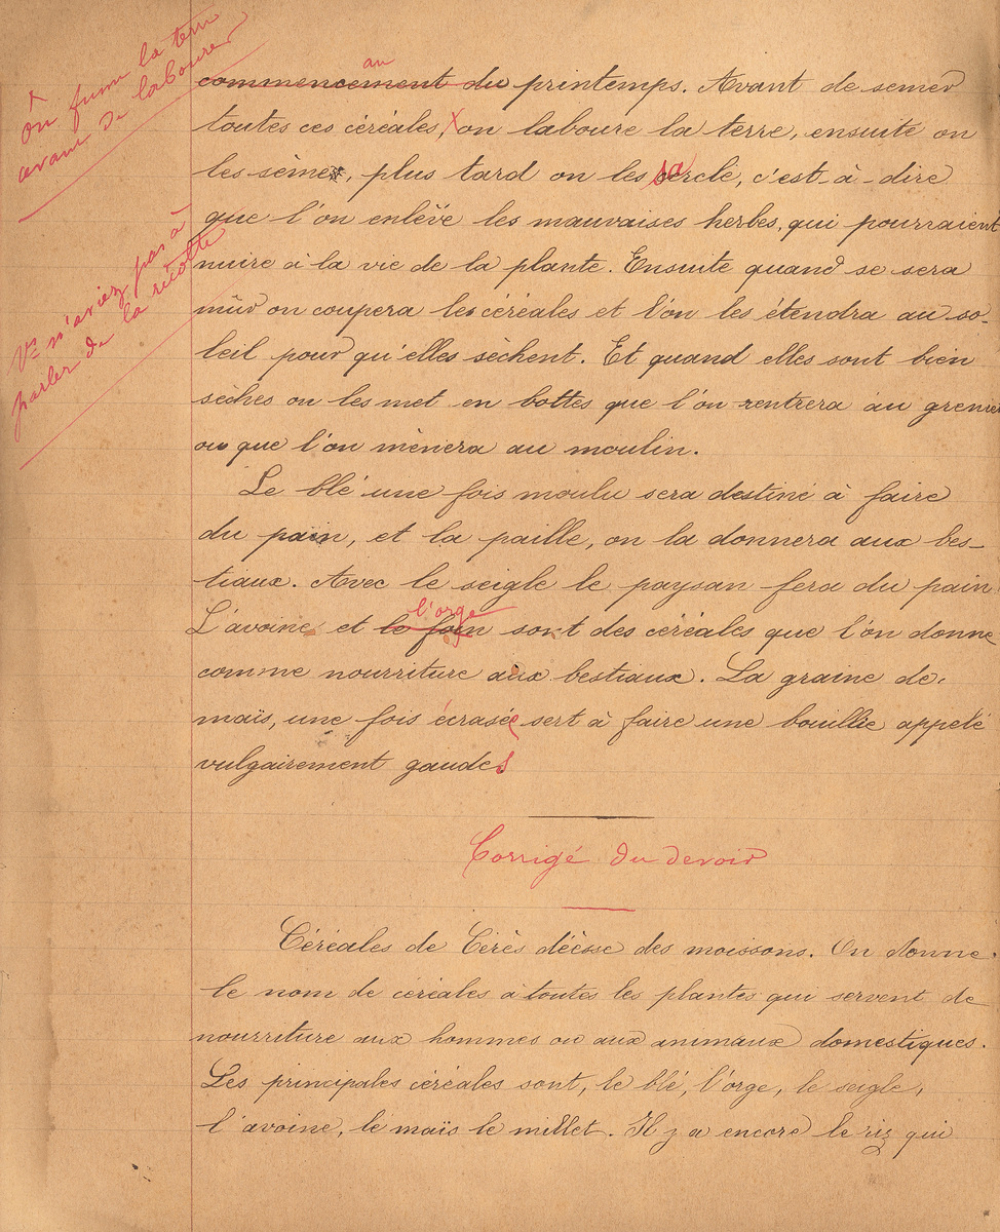 on fume la terre
avant de labourer
au
commencement du printemps. Avant de semer
toutes ces céréales, X on laboure la terre, ensuite on
les sème, plus tard on les sarcle, c'est-à-dire
que l'on enlève les mauvaises herbes, qui pourraient
Vs n'aviez pas à
parler de la récolte
nuire à la vie de la plante. Ensuite quand se sera
mûr on coupera les céréales et l'on les étendra au so-
leil pour qu'elles sèchent. Et quand elles sont bien
sèches on les met en bottes que l'on rentrera au grenier
ou que l'on mènera au moulin.
Le blé une fois moulu sera destiné à faire
du pain, et la paille, on la donnera aux bes-
tiaux. Avec le seigle le paysan fera du pain
l'orge
L'avoine et le foin sont des céréales que l'on donne
comme nourriture aux bestiaux. La graine de
maïs, une fois écrasée sert à faire une bouillie appelé
vulgairement gaudes
Corrigé du devoir
Céréales de Cérès déesse des moissons. On donne
le nom de céréales a toutes les plantes qui servent de
nourriture aux hommes ou aux animaux domestiques.
Les principales céréales sont, le blé, l'orge, le seigle,
l'avoine, le maïs le millet. Il y a encore le riz qui